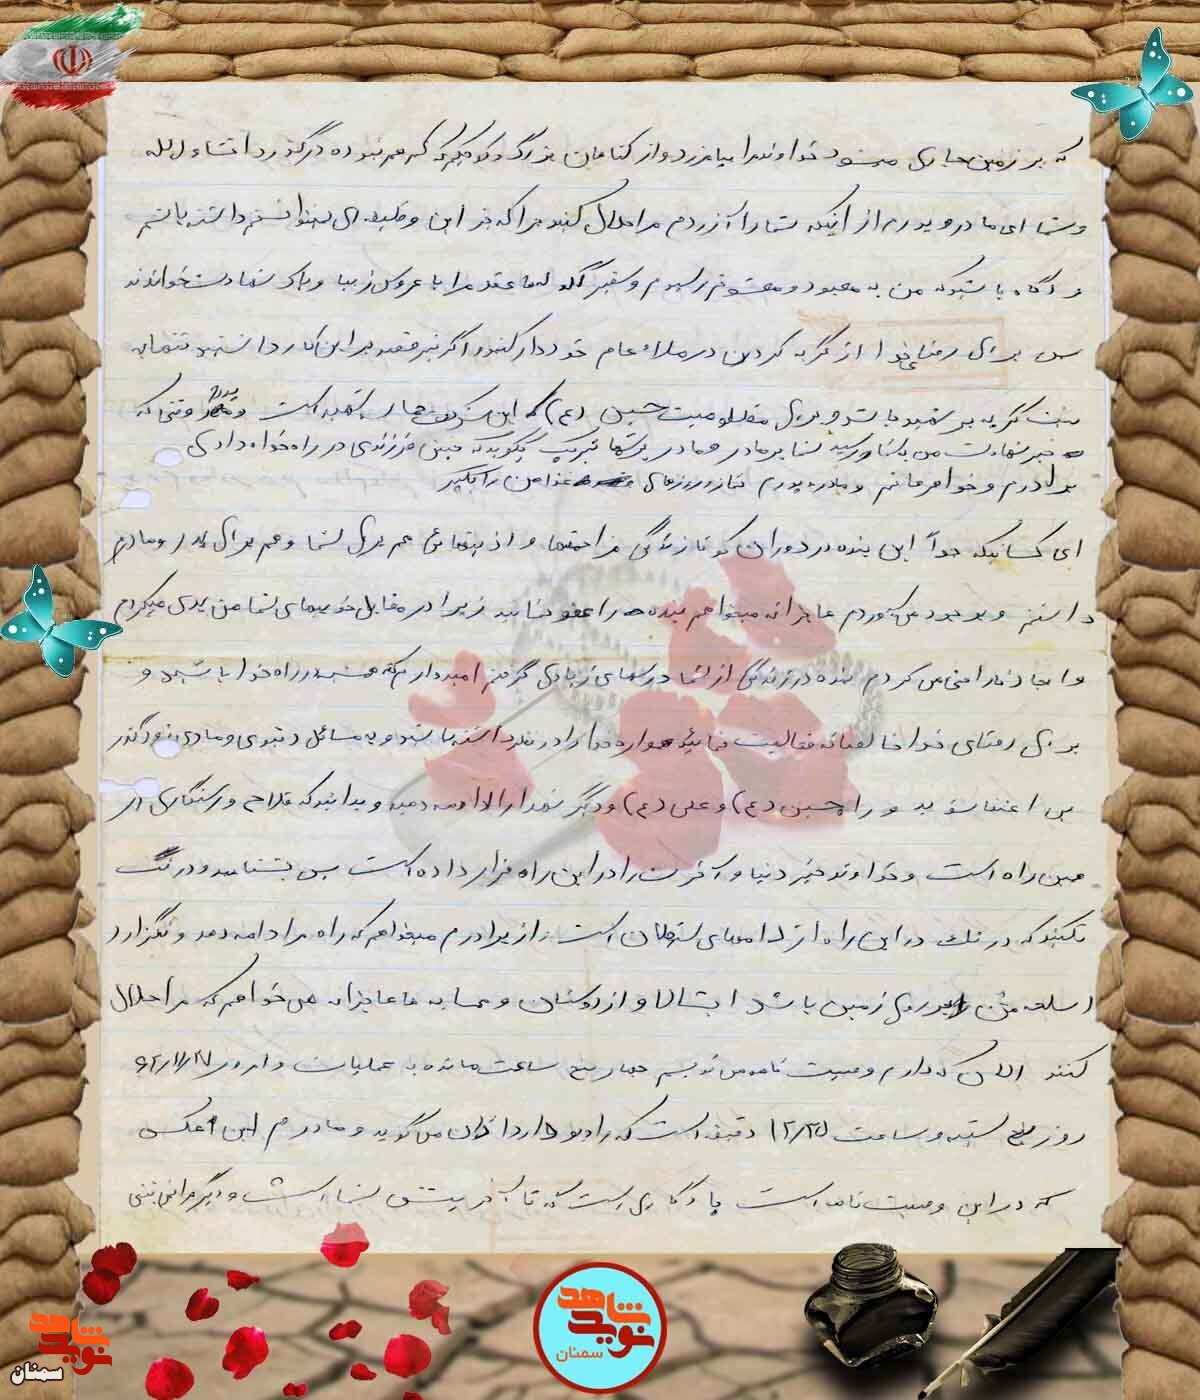 که بر زمین جاری میشود خداوند مرا بیامرزد و از گناهان بزرگ و کوچکم که کم هم نبوده درگذرد انشاءالله
و شما ای مادر و پدرم از اینکه شما را آزردم مرا حلال کنید چرا که جز این وظیفه ای نمیتوانستم داشته باشم
و آگاه باشید که من به معبود و معشوقم رسیدم و سفیر گلوله ها عقد مرا با عروس زیبا و پاک شهادت خواندند
پس برای رضای خدا از گریه کردن در ملاء عام خودداری کنید و اگر نیز قصد بر این کار داشتید تنها به
نیت گریه بر شهید باشد و برای مظلومیت حسین (ع) که این شهید است و پدرم وقتی که
خبر شهادت من به شما رسید شما بر مادر و مادر بر شما تبریک بگوید که چنین فرزندی در راه خدا دادی
برادرم و خواهرهایم و مادر و پدرم نماز و روزهای قضا من را بگیر
ای کسانیکه جداً این بنده در دوران کوتاه زندگی مزاحمتها و اذیتهائی هم برای شما و هم برای پدر و مادرم
داشتم و بوجود می آوردم عاجزانه میخواهم بنده را عفو نمایید زیرا در مقابل خوبیهای شما من بدی میکردم
و ایجاد ناراحتی می کردم بنده در زندگی از شما درسهای زیادی گرفتم امیدوارم که همیشه در راه خدا باشید و
برای رضای خدا خالصانه فعالیت نمایید همواره خدا را در نظر داشته باشید و به مسائل دنیوی و مادی زودگذر
بی اعتنا شوید و راه حسین (ع) و علی (ع) و دیگر شهدا را ادامه دهید و بدانید که فلاح و رستگاری در
همین راه است و خداوند خیر دنیا و آخرت را در این راه قرار داده است پس بشتابید و درنگ
نکنید که درنگ در این راه از دامهای شیطان است و از برادرم میخواهم که راه مرا ادامه دهد و نگزارد
اسلحه من بر روی زمین باشد انشاالله و از دوستان و همسایه ها عاجزانه می خواهم که مرا حلال
کنند الان که دارم وصیت نامه می نویسم چهار پنج ساعت مانده به عملیات و امروز ۶۲/۱۱/۲۷
روز پنج شنبه و ساعت ۱۲/۲۵ دقیقه است که رادیو دارد اذان می گوید و مادرم این عکسی
که در این وصیت نامه است یادگاری است که تا آفرینش شما است و دیگر مرا نمی بینی
شاهد
نوید
سمنان
شاهد
نوید
سمنان